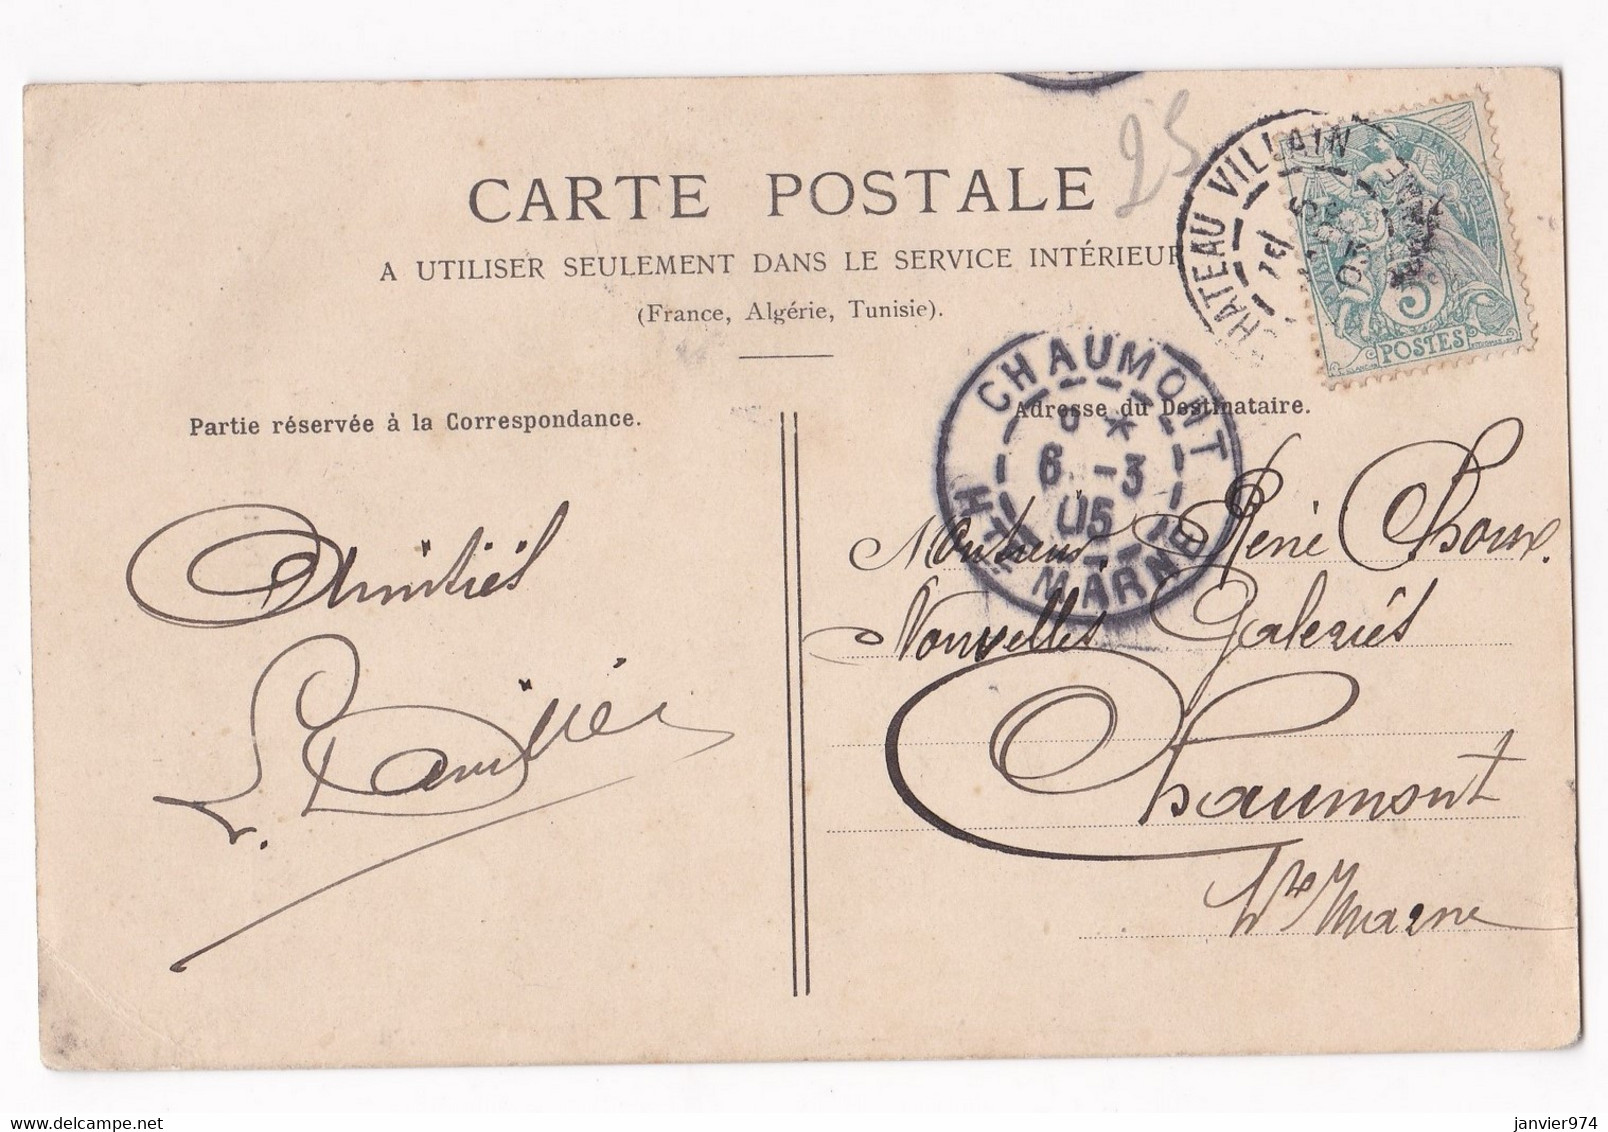 25
CARTE POSTALE
A UTILISER SEULEMENT DANS LE SERVICE INTÉRIEUR
(France, Algérie, Tunisie).
CHATEAU VILLAIN
05
5
POSTES
CHAUMONT
6 -3
05
HTE MARNE
Partie réservée à la Correspondance.
Amitiés
Adresse du Destinataire.
Monsieur René Choux.
Nouvelles Galeries
Chaumont
Hte Marne
www.delcampe.net
janvier974